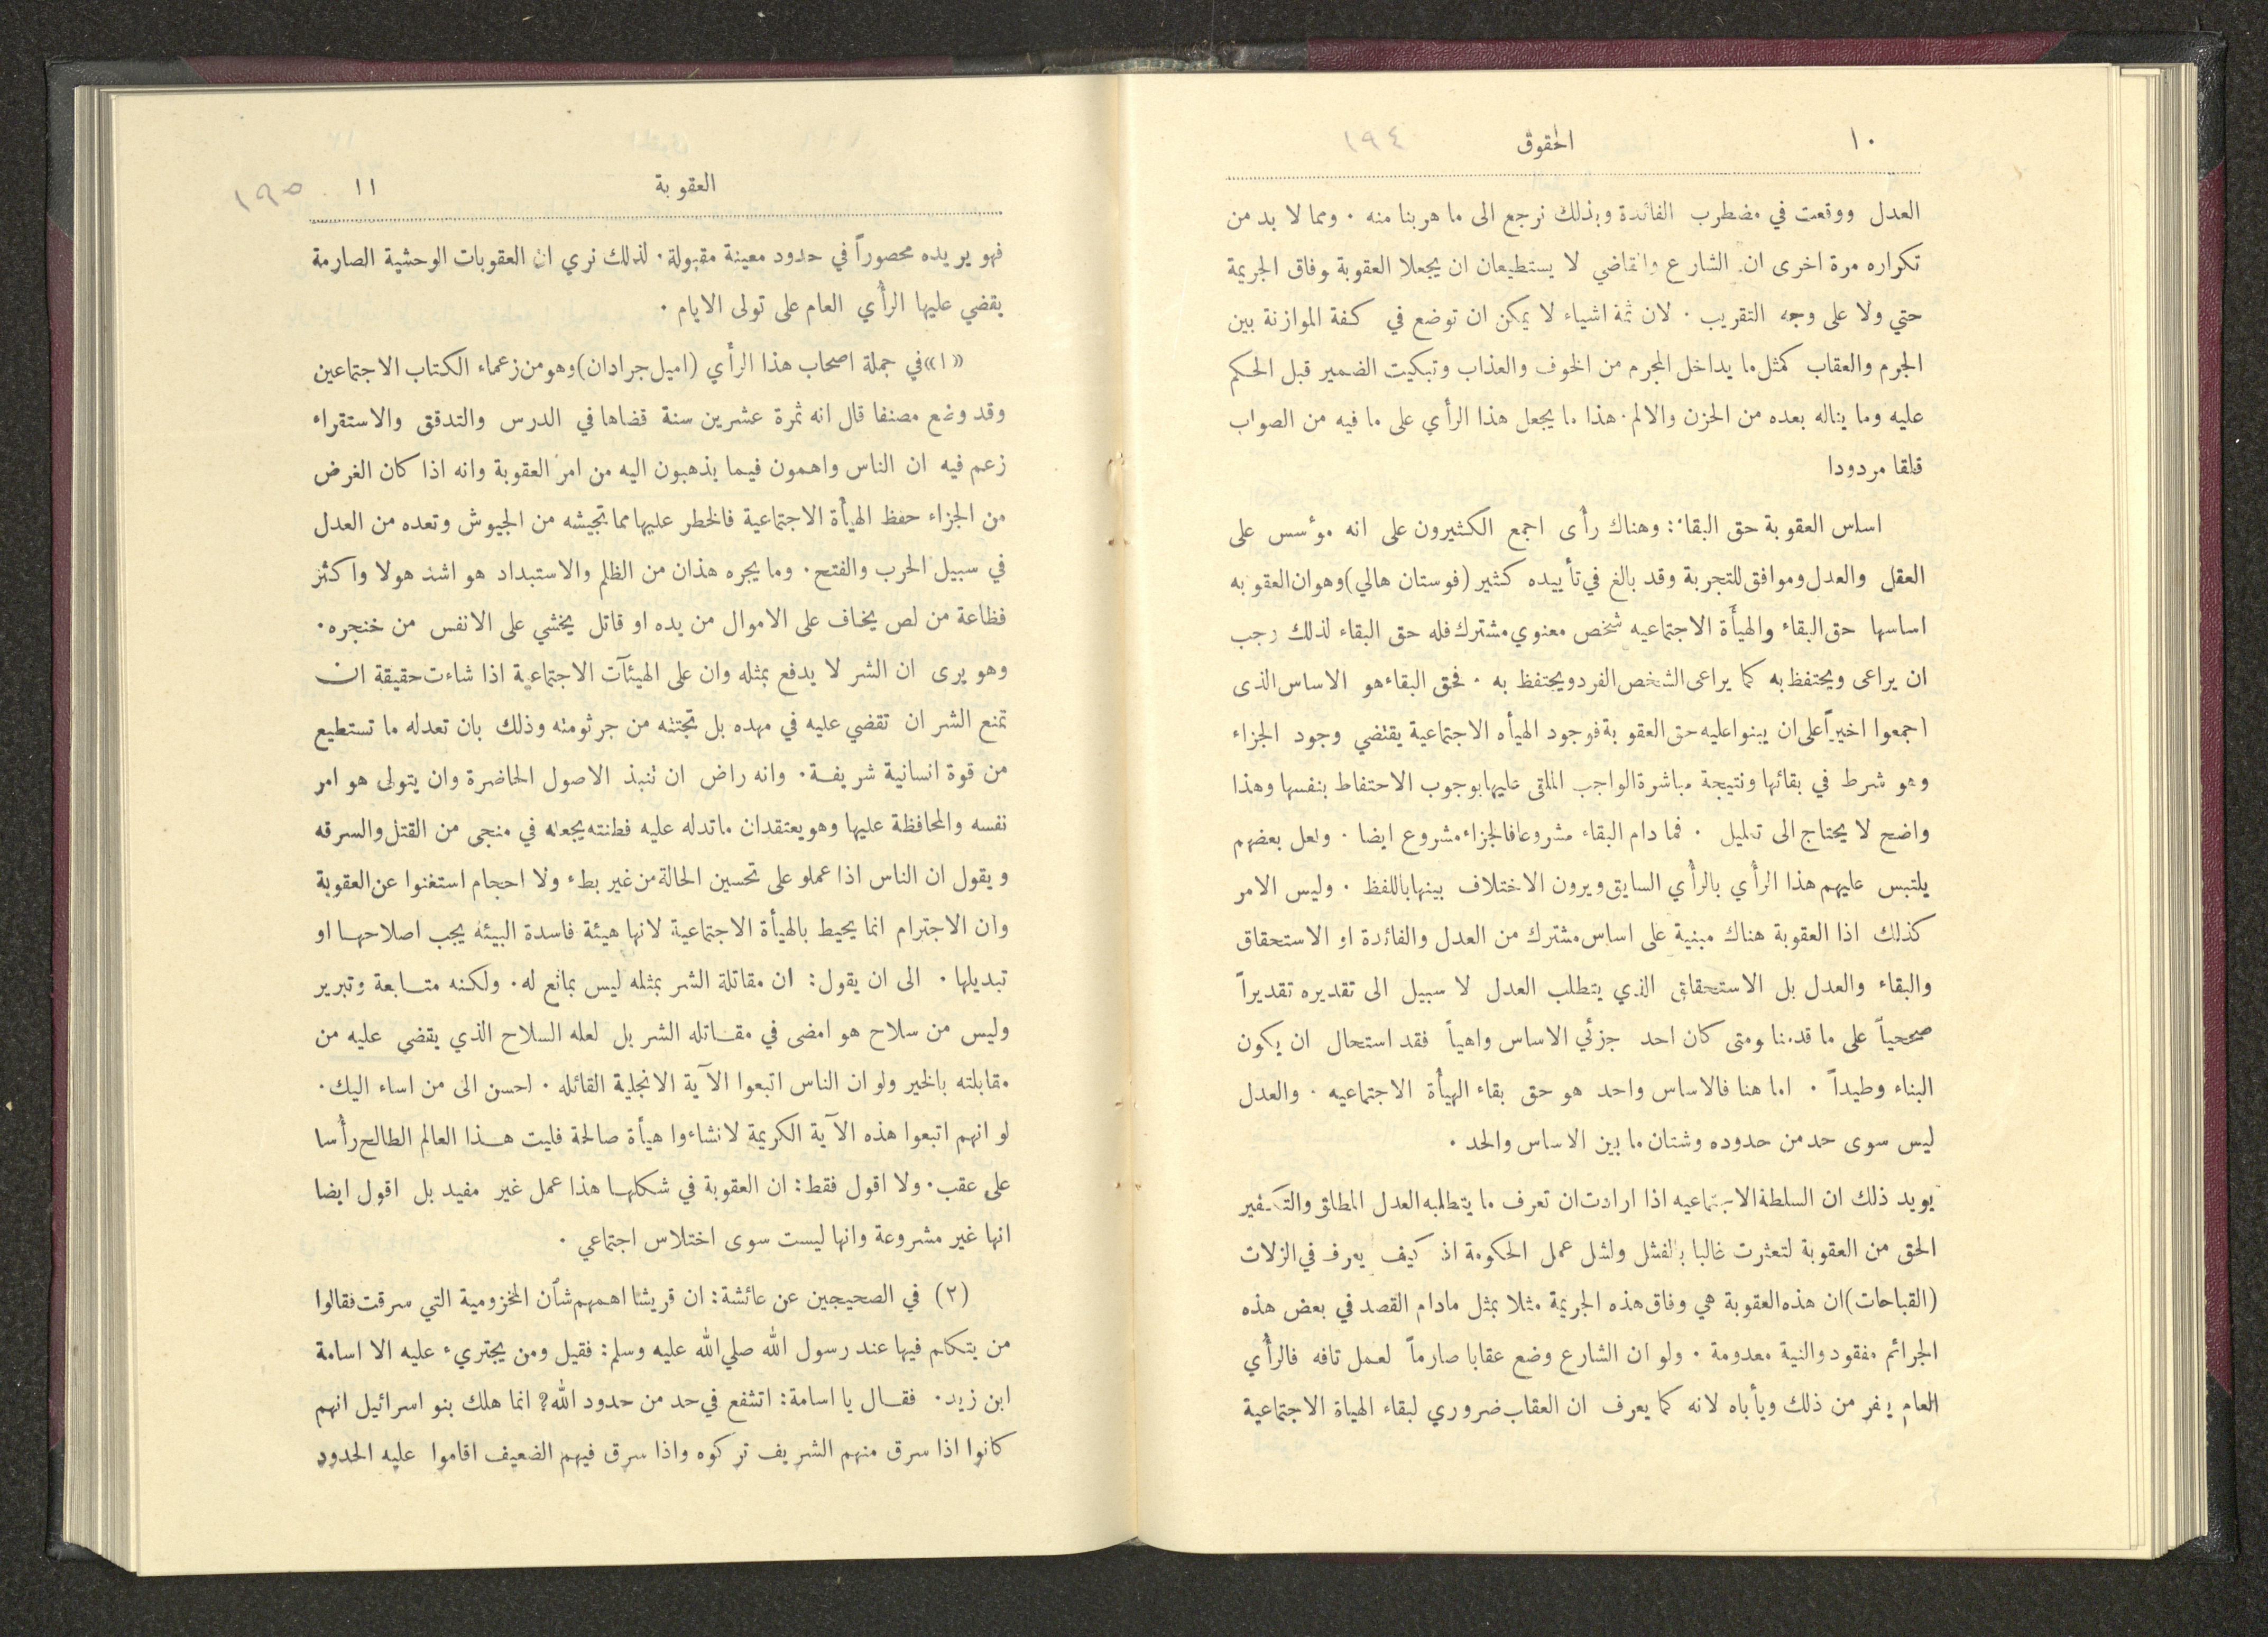 ١٠
الحقوق
١٩٤
العدل ووقعت في مضطرب الفائدة وبذلك نرجع الى ما هربنا منه . ومما لا بد من
تكراره مرة اخرى ان الشارع والقاضي لا يستطيعان ان يجعلا العقوبة وفاق الجريمة
حتي ولا على وجه التقريب . لان ثمة اشياء لا يمكن ان توضع في كفة الموازنة بين
الجرم والعقاب كمثل ما يداخل المجرم من الخوف والعذاب وتبكيت الضمير قبل الحكم
عليه وما يناله بعده من الحزن والالم . هذا ما يجعل هذا الرأي على ما فيه من الصواب
قلقا مردودا
اساس العقوبة حق البقاء : وهناك رأى اجمع الكثيرون على انه مؤسس على
العقل والعدل وموافق للتجربة وقد بالغ في تأييده كثير (فوستان هالي) وهو ان العقوبه
اساسها حق البقاء والهيأة الاجتماعيه شخص معنوي مشترك فله حق البقاء لذلك وجب
ان يراعى ويحتفظ به كما يراعى الشخص الفرد ويحتفظ به . فحق البقاء هو الاساس الذى
اجمعوا اخيراً على ان يبنوا عليه حق العقوبة فوجود الهيأه الاجتماعية يقتضي وجود الجزاء
وهو شرط في بقائها ونتيجة مباشرة الواجب الملقى عليها بوجوب الاحتفاط بنفسها وهذا
واضح لا يحتاج الى تعليل . فما دام البقاء مشروعا فالجزاء مشروع ايضا . ولعل بعضهم
يلتبس عليهم هذا الرأي بالرأي السابق ويرون الاختلاف بينها باللفظ . وليس الامر
كذلك اذا العقوبة هناك مبنية على اساس مشترك من العدل والفائدة او الاستحقاق
والبقاء والعدل بل الاستحقاق الذي يتطلب العدل لا سبيل الى تقديره تقديراً
صححياً على ما قدمنا ومتى كان احد جزئي الاساس واهياً فقد استحال ان يكون
البناء وطيداً . اما هنا فالاساس واحد هو حق بقاء الهيأة الاجتماعيه . والعدل
ليس سوى حد من حدوده وشتان ما بين الاساس والحد .
يويد ذلك ان السلطة الاجتماعيه اذا ارادت ان تعرف ما يتطلبه العدل المطلق والتكفير
الحق من العقوبة لتعثرت غالبا بالفشل ولشل عمل الحكومة اذ كيف يعرف في الزلات
(القباحات) ان هذه العقوبة هي وفاق هذه الجريمة مثلا بمثل مادام القصد في بعض هذه
الجرائم مفقود والنية معدومة . ولو ان الشارع وضع عقابا صارماً لعمل تافه فالرأي
العام ينفر من ذلك ويأباه لانه كما يعرف ان العقاب ضروري لبقاء الهياة الاجتماعية
العقوبة
١١
١٩٥
فهو يريده محصوراً في حدود معينة مقبولة . لذلك نري ان العقوبات الوحشية الصارمة
يقضي عليها الرأي العام على تولى الايام .
«١» في جملة اصحاب هذا الرأي (اميل جرادان) وهو من زعماء الكتاب الاجتماعين
وقد وضع مصنفا قال انه ثمرة عشرين سنة قضاها في الدرس والتدقق والاستقراء
زعم فيه ان الناس واهمون فيما يذهبون اليه من امر العقوبة وانه اذا كان الغرض
من الجزاء حفظ الهيأة الاجتماعية فالخطر عليها مما تجيشه من الجيوش وتعده من العدل
في سبيل الحرب والفتح . وما يجره هذان من الظلم والاستبداد هو اشد هولا واكثر
فظاعة من لص يخاف على الاموال من يده او قاتل يخشي على الانفس من خنجره .
وهو يرى ان الشر لا يدفع بمثله وان على الهيئآت الاجتماعية اذا شاءت حقيقة ان
تمنع الشر ان تقضي عليه في مهده بل تجتثه من جرثومته وذلك بان تعدله ما تستطيع
من قوة انسانية شريفة . وانه راض ان تنبذ الاصول الحاضرة وان يتولى هو امر
نفسه والمحافظة عليها وهو يعتقد ان ماتدله عليه فطنته يجعله في منجى من القتل والسرقه
ويقول ان الناس اذا عملو على تحسين الحالة من غير بطء ولا احجام استغنوا عن العقوبة
وان الاجترام انما يحيط بالهيأة الاجتماعية لانها هيئة فاسدة البيئه يجب اصلاحها او
تبديلها . الى ان يقول : ان مقاتلة الشر بمثله ليس بمانع له . ولكنه متابعة وتبرير
وليس من سلاح هو امضى في مقاتله الشر بل لعله السلاح الذي يقضي عليه من
مقابلته بالخير ولو ان الناس اتبعوا الآية الانجلية القائله . احسن الى من اساء اليك .
لو انهم اتبعوا هذه الآية الكريمة لانشاءوا هيأة صالحة فليت هذا العالم الطالح رأسا
على عقب . ولا اقول فقط : ان العقوبة في شكلها هذا عمل غير مفيد بل اقول ايضا
انها غير مشروعة وانها ليست سوى اختلاس اجتماعي .
(٢) في الصحيحين عن عائشة : ان قريشا اهمهم شأن المخزومية التي سرقت فقالوا
من يتكلم فيها عند رسول الله صلي الله عليه وسلم : فقيل ومن يجتريء عليه الا اسامة
ابن زيد . فقال يا اسامة : اتشفع في حد من حدود الله ؟ انما هلك بنو اسرائيل انهم
كانوا اذا سرق منهم الشريف تركوه واذا سرق فيهم الضعيف اقاموا عليه الحدود